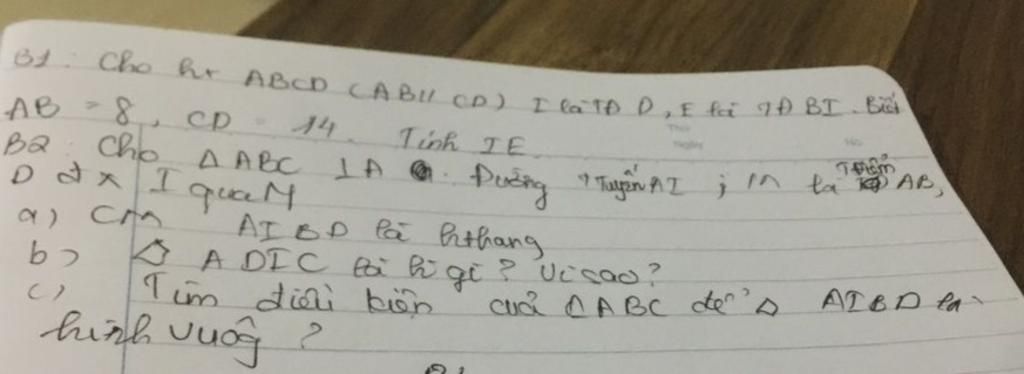 B1: Cho ht ABCD (AB // CD) I là TĐ D, E là TĐ BI. Biết
AB = 8, CD = 14. Tính IE
B2: Cho Δ ABC ⊥ A. Đường Tuyến AI; M là TĐiểm AB,
D đx I qua M
a) Cm AIBD là hthang
b) ◇ ADIC là hì gì? Vì sao?
c) Tìm điều kiện cuả ΔABC để ◇ AIBD là
hình vuôg?